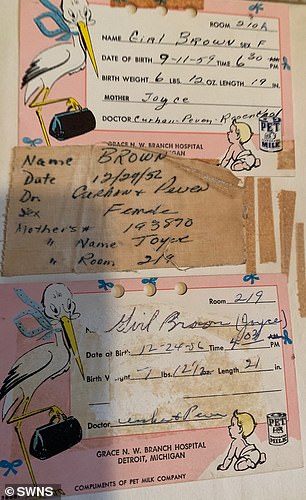 ROOM 210A
NAME Girl BROWN SEX F
DATE OF BIRTH 9-11-59 TIME 6:30 PM
BIRTH WEIGHT 6 LBS. 12 OZ. LENGTH 19 IN.
MOTHER Joyce
DOCTOR Curhan-Peven-Rosenthal
PET
MILK
GRACE N. W. BRANCH HOSPITAL
MICHIGAN
Name BROWN
Date 12/24/56
Dr. Curhan + Peven
Sex Female
Mother's # 193870
" Name Joyce
" Room 219
Room 219
Girl Brown (Joyce)
Date of Birth 12-24-56 Time PM
Birth W ght 7 lbs. Length 21 in.
Doctor Peven
PET
MILK
GRACE N. W. BRANCH HOSPITAL
DETROIT, MICHIGAN
COMPLIMENTS OF PET MILK COMPANY
© SWNS